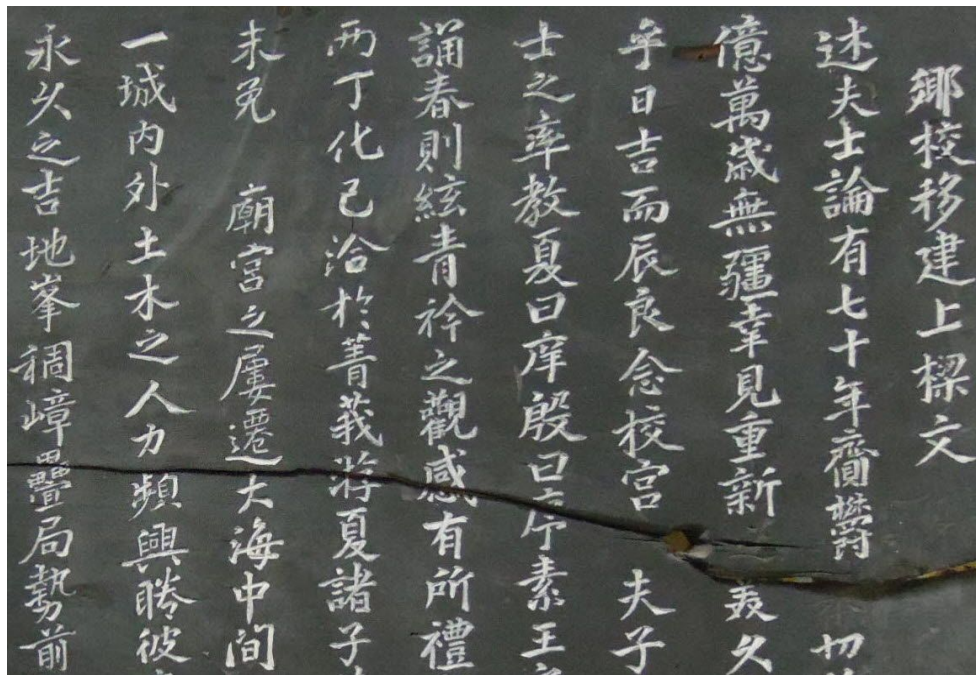 鄉校移建上樑文
述夫士論有七十年齎鬱 切
億萬歲無疆幸見重新 美久
乎日吉而辰良念校宮 夫子
士之率教夏曰庠殷曰序素王
誦春則絃青衿之觀感有所禮
兩丁化已洽於菁莪游夏諸子
未免 廟宮之屢遷大海中間
一城內外土木之人力頻興勝彼
永久之吉地峯稠嶂疊局勢前